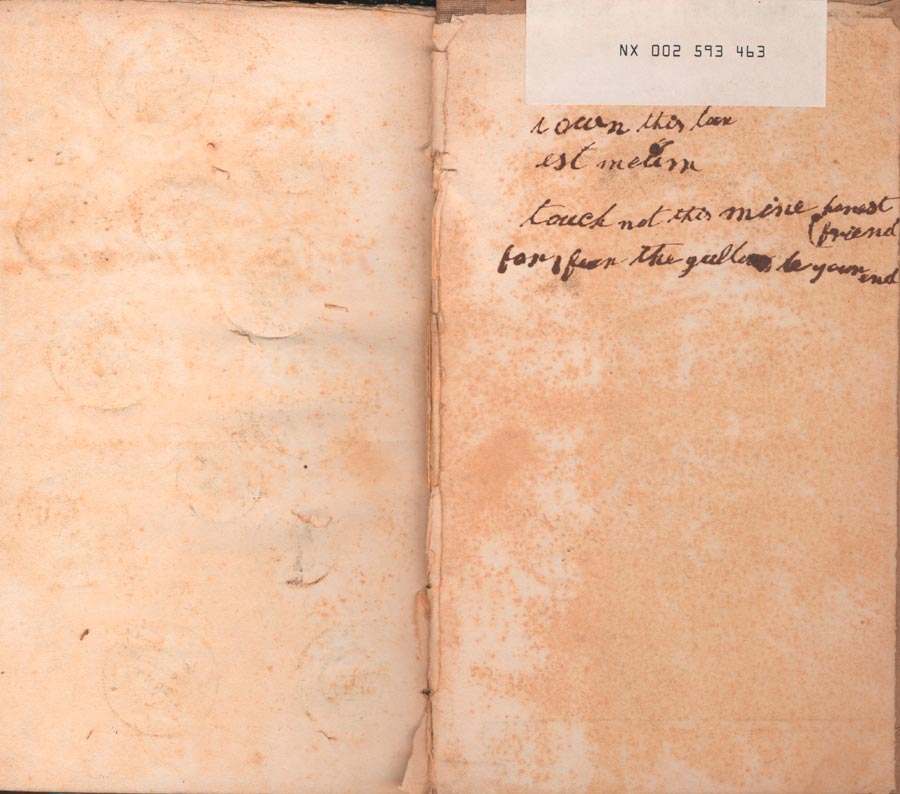 NX 002 593 463
i own this
est
touch not this mine honest
friend
for fear the gullows be your
end